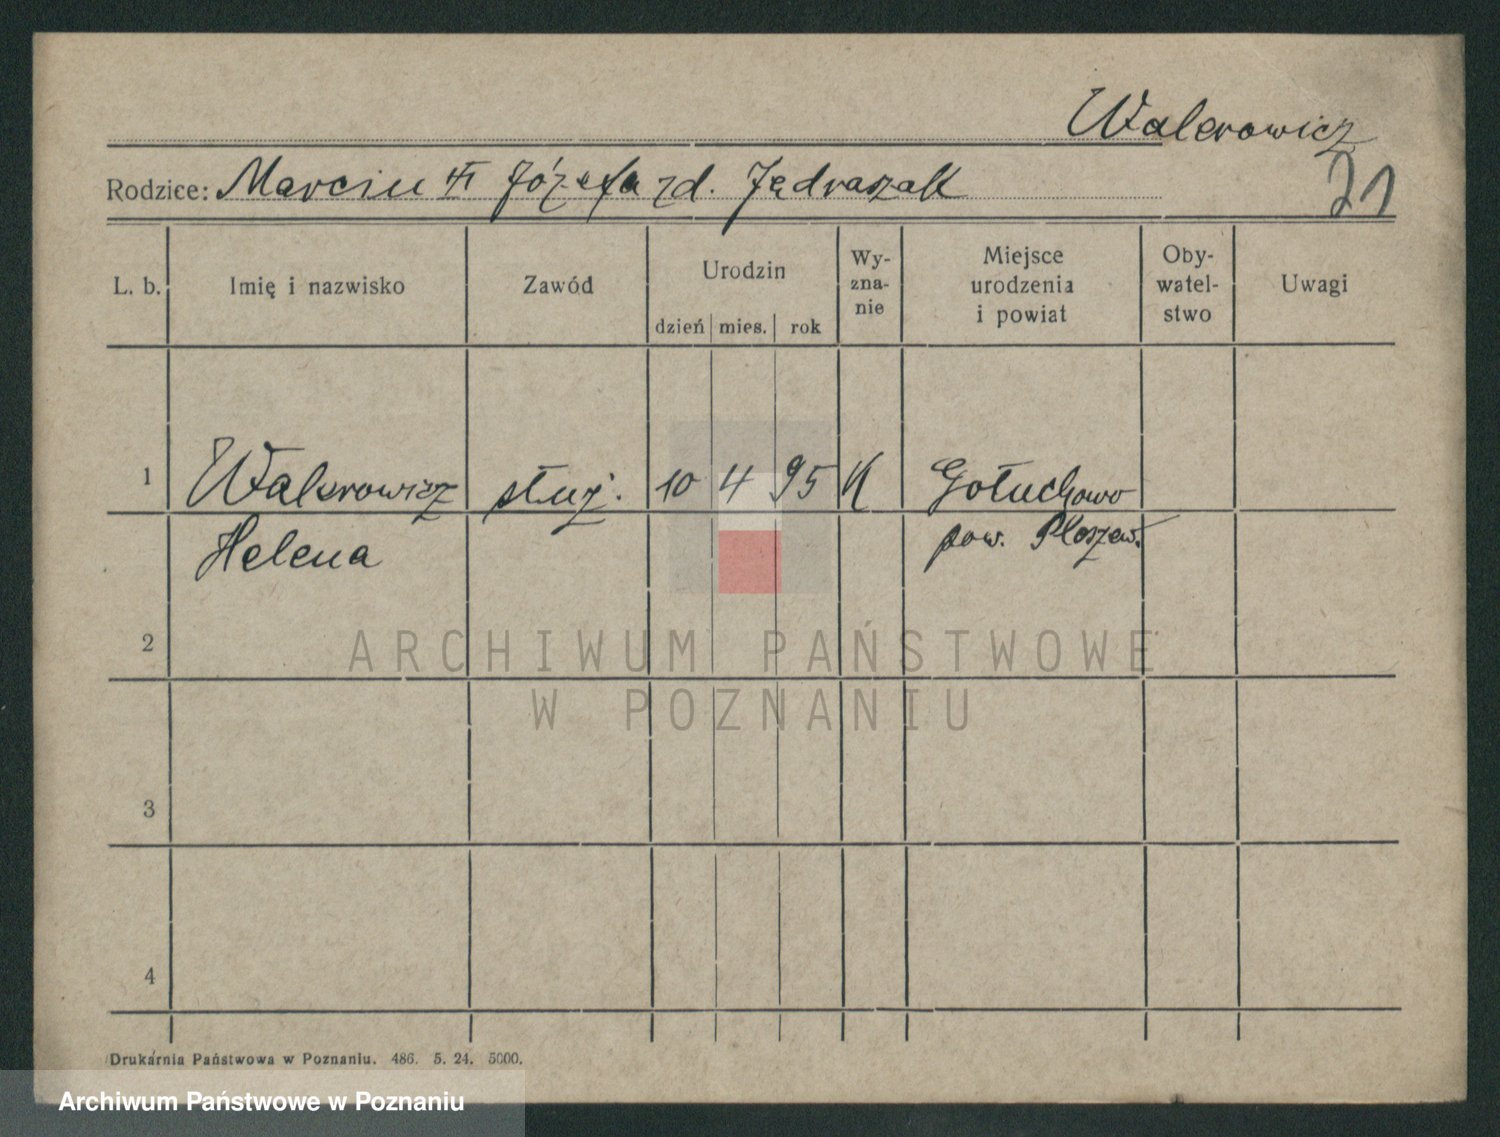 Walerowicz
Rodzice: Marcin Józefa zd. Jędraszak
21
L. b. Imię i nazwisko Zawód Urodzin Wy-
zna-
nie Miejsce
urodzenia
i powiat Oby-
watel-
stwo Uwagi
dzień mies. rok
1 Walerowicz służ. 10 4 95 K Gołuchowo
Helena pow. Pleszew.
2
ARCHIWUM PAŃSTWOWE
W POZNANIU
3
4
Drukarnia Państwowa w Poznaniu. 486. 5. 24. 5000.
Archiwum Państwowe w Poznaniu